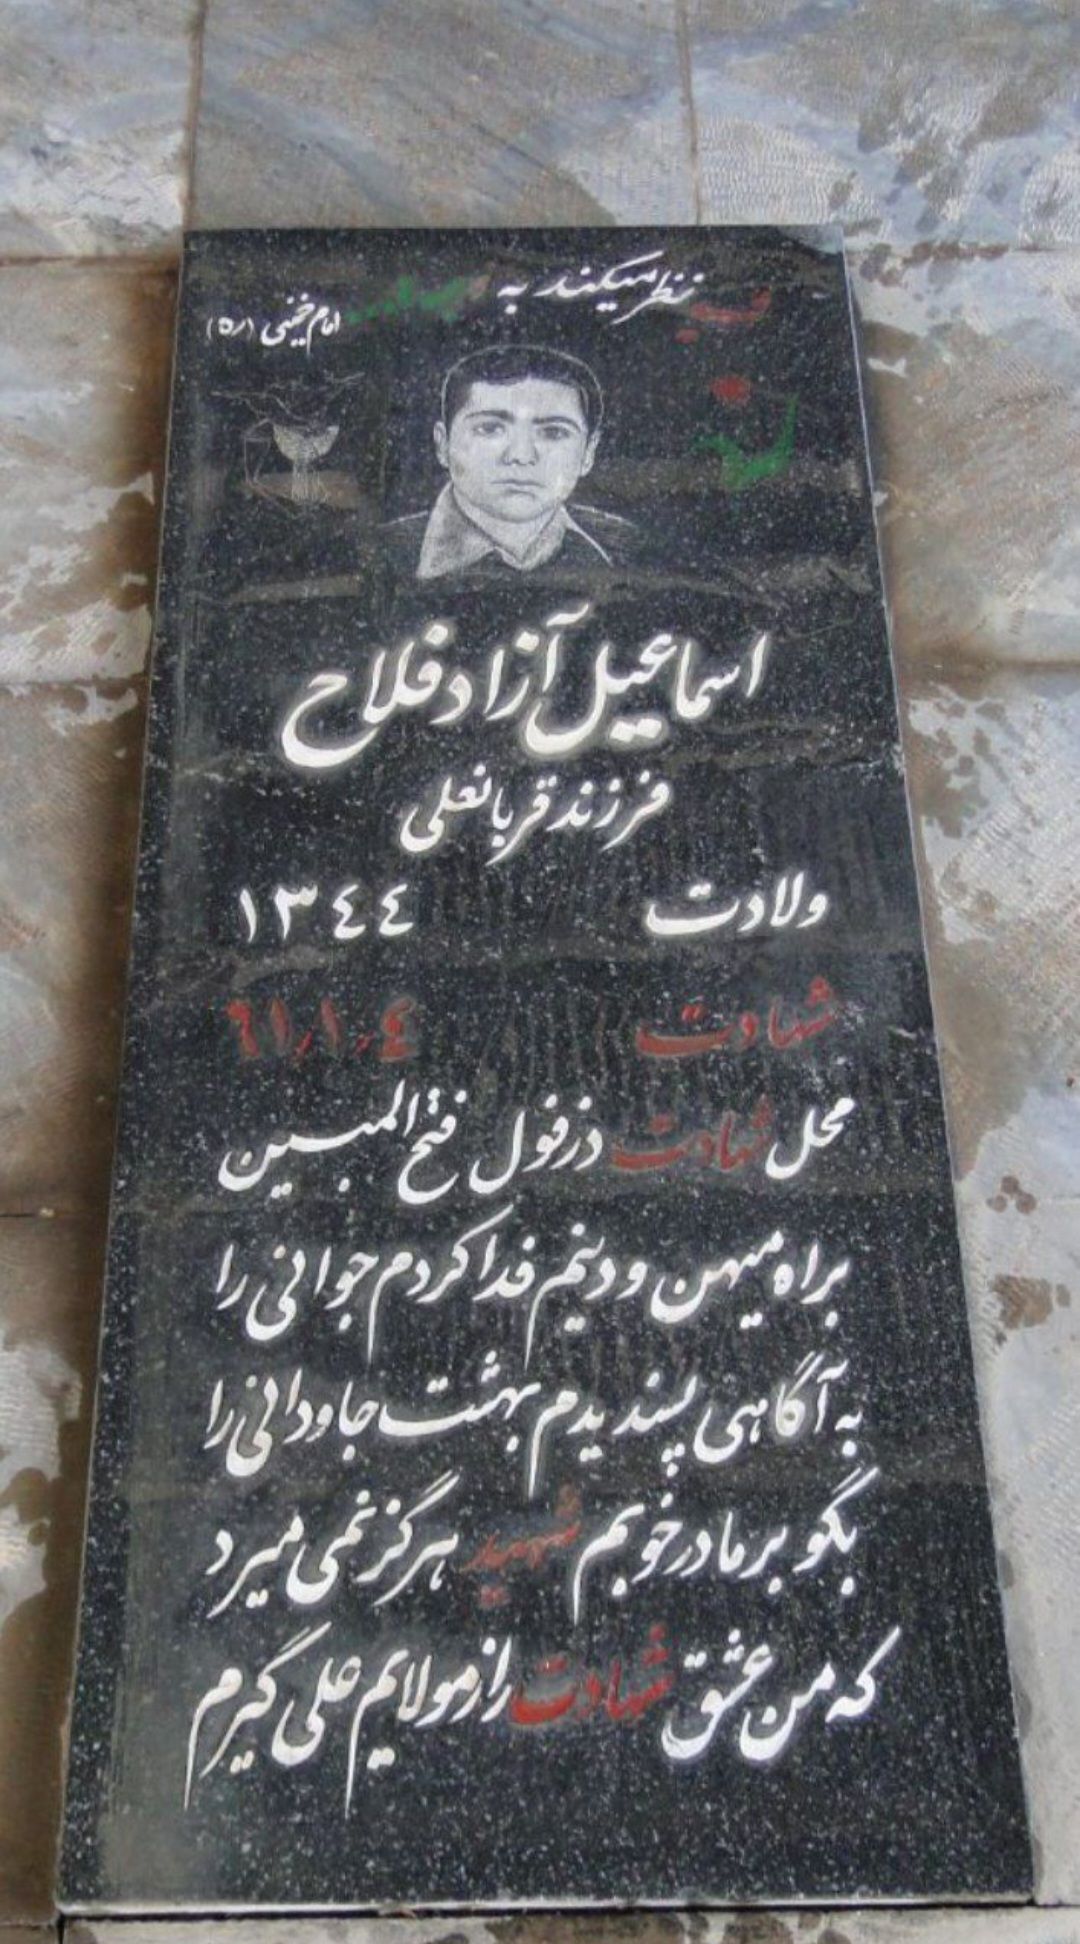 نظر میکند به
امام خمینی (ره)
اسماعیل آزاد فلاح
فرزند قربانعلی
ولادت ١٣٤٤
شهادت ٦١/١/٤
محل شهادت دزفول فتح المبین
براه میهن و دینم فدا کردم جوانی را
به آگاهی پسندیدم بهشت جاودانی را
بگو بر مادر خوبم شهید هرگز نمی میرد
که من عشق شهادت را از مولایم علی گیرم